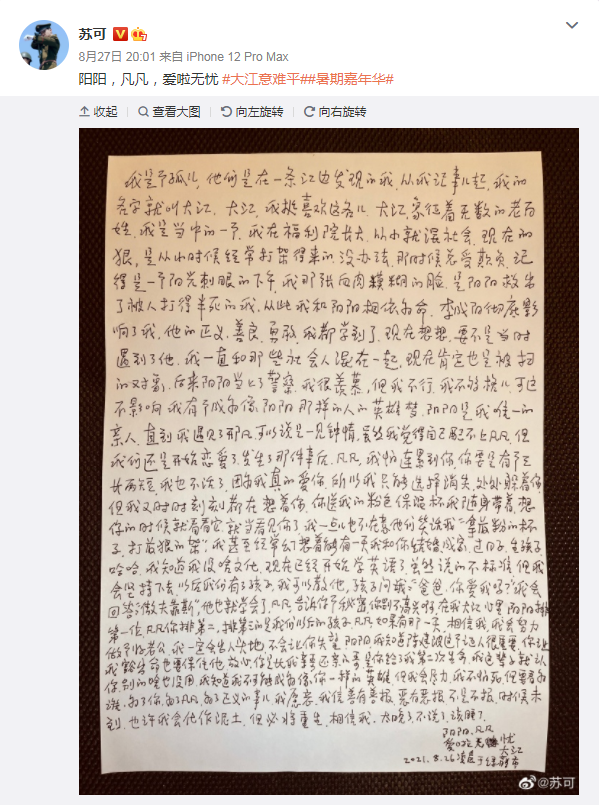 苏可
8月27日 20:01 来自 iPhone 12 Pro Max
阳阳，凡凡，爱啦无忧 #大江意难平##暑期嘉年华#
收起 查看大图 向左旋转 向右旋转
我是个孤儿，他们是在一条江边发现的我，从我记事儿起，我的
名字就叫大江，大江，我挺喜欢这名儿，大江，象征着无数的老百
姓，我是当中的一个，我在福利院长大，从小就混社会，现在的
狠，是从小时候经常打架得来的，没办法，那时候总受欺负，记
得是一个阳光刺眼的下午，我那张血肉模糊的脸，是阳阳救出
了被人打得半死的我，从此我和阳阳相依为命，李成阳彻底影
响了我，他的正义，善良，勇敢，我都学到了，现在想想，要不是当时
遇到了他，我一直和那些社会人混在一起，现在肯定也是被扫
的对象，后来阳阳当上了警察，我很羡慕，但我不行，我不够格儿，可这
不影响我有个成为像阳阳那样的人的英雄梦，阳阳是我唯一的
亲人，直到我遇见了那凡，可以说是一见钟情，虽然我觉得自己配不上凡凡，但
我们还是开始恋爱了，发生了那件事后，凡凡，我怕连累到你，你要是有个三
长两短，我也不活了，因为我真的爱你，所以我只能选择消失，处处躲着你，
但我又时时刻刻都在想着你，你送我的粉色保温杯我随身带着，想
你的时候就看看它，就当看见你了，我一点儿也不在意他们笑话我“拿最粉的杯
子，打最狠的架”，我甚至经常幻想着能有一天我和你结婚成家，过日子，生孩子
哈哈，我知道我没啥文化，现在已经开始学英语了，虽然说的不标准，但我
会坚持下去，以后我们有了孩子，我可以教他，孩子问我：“爸爸，你爱我吗？”我会
回答：
第一位，凡凡你排第二，排第三的是我们以后的孩子，凡凡，如果有那一天，相信我，我会努力
做个好老公，我一定会出人头地，不会让你失望，阳阳，我知道陈建波这个证人很重要，你让
我豁出命也要保住他，放心，你是比我亲哥还亲的哥，是你给了我第二次生命，我这辈子就认
你，别的啥也没用，我知道我不可能成为像你一样的英雄，但我会尽力，我不怕死，但要看为
谁，为了你，为了凡凡，为了正义的事儿，我愿意，我信善有善报，恶有恶报，不是不报，时候未
到，也许我会化作泥土，但必将重生，相信我，太晚了，不说了，该睡了。
阳阳，凡凡
爱啦无忧
大江
2021.8.26凌晨于绿藤市
@苏可